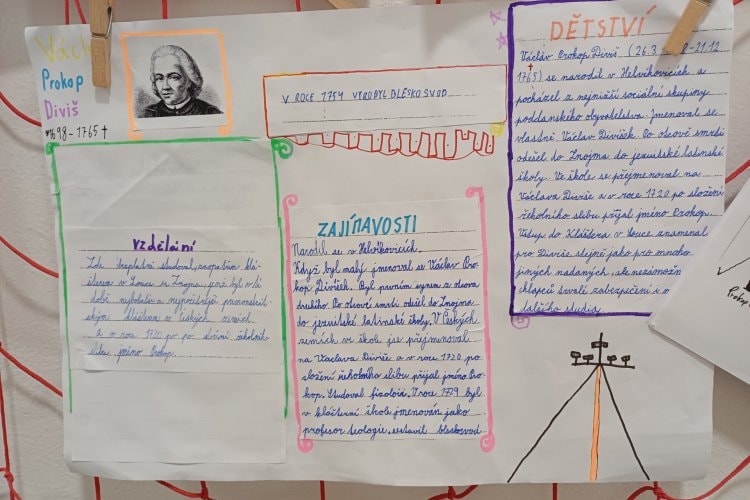 Václ
Prokop
Diviš
*1698-1765†
V ROCE 1754 VYROBYL BLESKOSVOD
DĚTSTVÍ
Václav Prokop Diviš (26.3. 8-21.12
1765) se narodil v Helvíkovicích a
pocházel z nejnižší sociální skupiny
poddanského obyvatelstva. jmenoval se
vlastně Václav Divíšek. Po otcově smrti
odešel do Znojma do jezuitské latinské
školy. Ve škole se přejmenoval na
Václava Diviše a v roce 1720 po složení
řeholního slibu přijal jméno Prokop.
Vstup do Kláštera v Louce znamenal
pro Diviše stejně jako pro mnoho
jiných nadaných, ale nezámožn
chlapců trvalé zabezpečení i m
dalšího studia.
vzdělání
Zde bezplatně studoval, zaopatřen klá-
šterem v Louce u Znojma, jenž byl v té
době nejbohatším
klášterem v českých zemích.
a v roce 1720 po po složení řeholního
slibu jméno Prokop.
ZAJÍMAVOSTI
Narodil se v Helvíkovicích.
Když byl malý jmenoval se Václav Pro-
kop Divíšek. Byl prvním synem z otcova
druhého. Po otcově smrti odešel do Znojma
do jezuitské latinské školy. V Českých
zemích ve škole jse přejmenoval
na Václava Diviše a v roce 1720 po
složení řeholního slibu přijal jméno Pro-
kop. Studoval fizoloia. V roce 1729 byl
v klášterní škole jmenován jako
profesor teologie. sestavil bleskosvod
Prokop